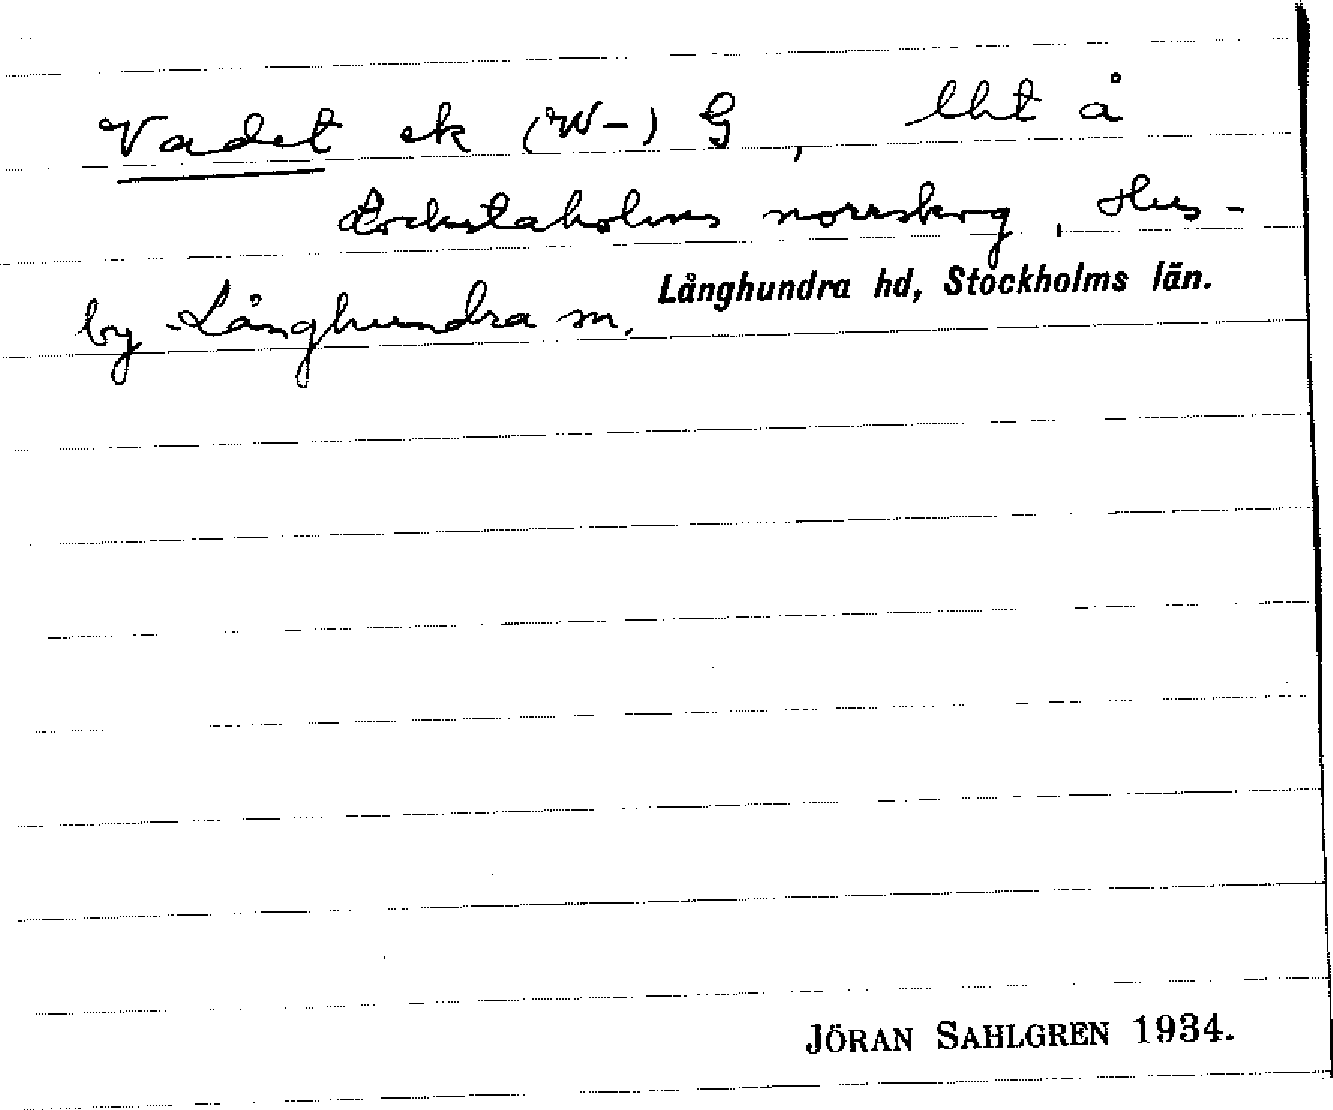 Vadet ek (W-) G, lht å
Lockstaholms norrskog, Hus-
by-Långhundra sn.
Långhundra hd, Stockholms län.
JÖRAN SAHLGREN 1934.